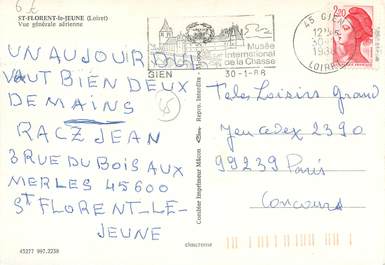 6 €
ST-FLORENT-le-JEUNE (Loiret)
Vue générale aérienne
UN AUJOUR DUI
VAUT BIEN DEUX
DEMAINS
RACZ JEAN
3 RUE DU BOIS AUX
MERLES 45600
ST FLORENT-LE-
JEUNE
45277 997.2238
Combier Imprimeur Mâcon
Repro. Interdite
Musée
International
de la Chasse
GIEN
30-1-88
45 GIEN
12H
30
198
LOIRET
2,20
Tele Loisirs Grand
Jeu cedex 2390
99239 Paris
Concours